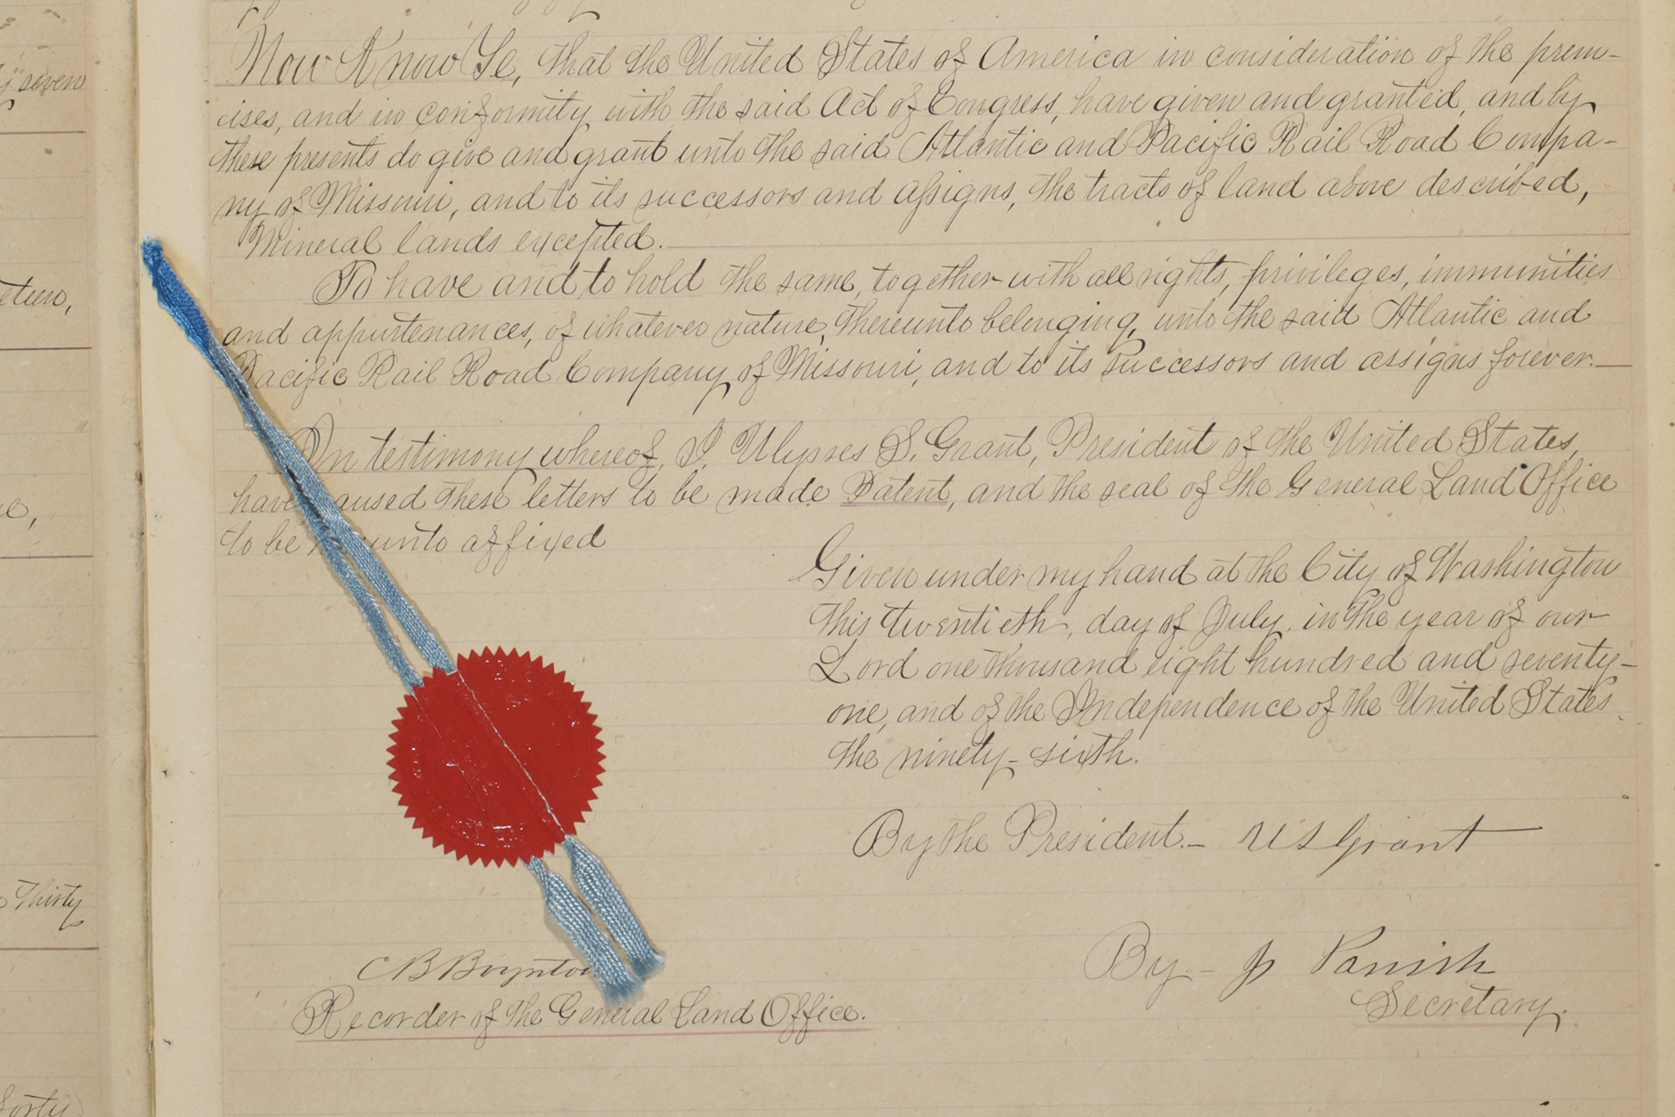 y seven
Now Know Ye, that the United States of America in consideration of the prem-
ises, and in conformity with the said Act of Congress, have given and granted, and by
these presents do give and grant unto the said Atlantic and Pacific Rail Road Compa-
ny of Missouri, and to its successors and assigns, the tracts of land above described,
Mineral lands excepted.
To have and to hold the same, together with all rights, privileges, immunities
and appurtenances, of whatever nature, thereunto belonging, unto the said Atlantic and
Pacific Rail Road Company of Missouri, and to its successors and assigns forever.
In testimony whereof, I, Ulysses S. Grant, President of the United States,
have caused these letters to be made Patent, and the seal of the General Land Office
to be hereunto affixed
Given under my hand at the City of Washington
this twentieth, day of July, in the year of our
Lord one thousand eight hundred and seventy-
one, and of the Independence of the United States
the ninety-sixth.
By the President.- U S Grant
Thirty
By - J Parrish
Secretary.
C B Boynton
Recorder of the General Land Office.
forty